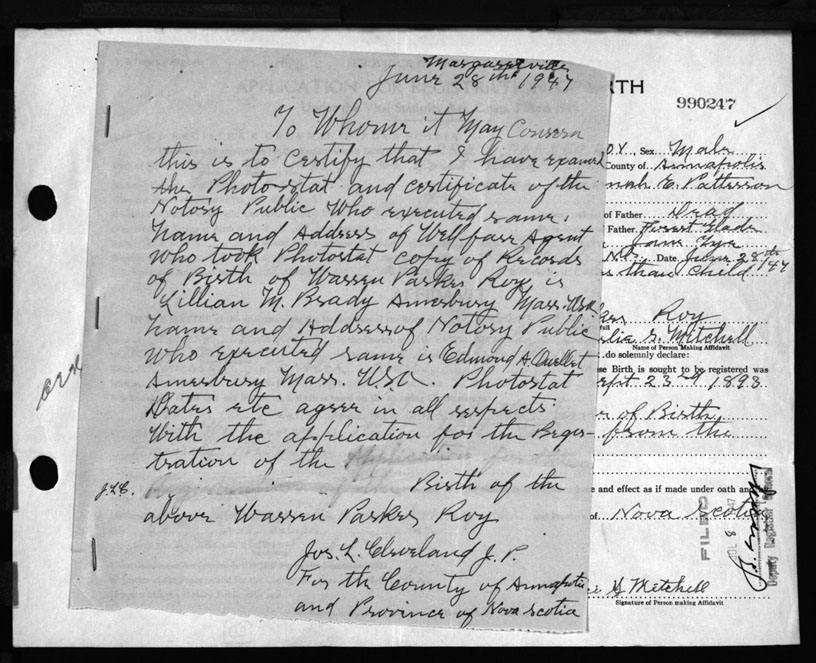 Margaretville
June 28th 1947
To Whome it May Consern
this is to certify that I have examed
the Photostat and certificate of the
Notory Public Who executed same.
Name and Address of Wellfare Agent
who took Photostat copy of Records
of Birth of Warren Parker Roy is
Lillian M. Brady Amesbury Mass. USA.
Name and Address of Notory Public
who executed same is Edmond A. Ouellet
Amesbury Mass. USA. Photostat
Dates etc agree in all respects
With the application for the Regis-
tration of the
J.L.C. Birth of the
above Warren Parker Roy
Jos. L. Cleveland J.P.
For th County of Annapolis
and Province of Nova Scotia
RTH
990247
Sex Male
County of Annapolis
E. Patterson
of Father Dead
Father, Forest Glade
Date June 28th/47
than child
Roy
full
S. Mitchell
Name of Person Making Affidavit
do solemnly declare:
se Birth is sought to be registered was
23rd 1893
of Birth
from the
e and effect as if made under oath and
of Nova Scotia
FILED
Deputy Registrar General
S Mitchell
Signature of Person making Affidavit